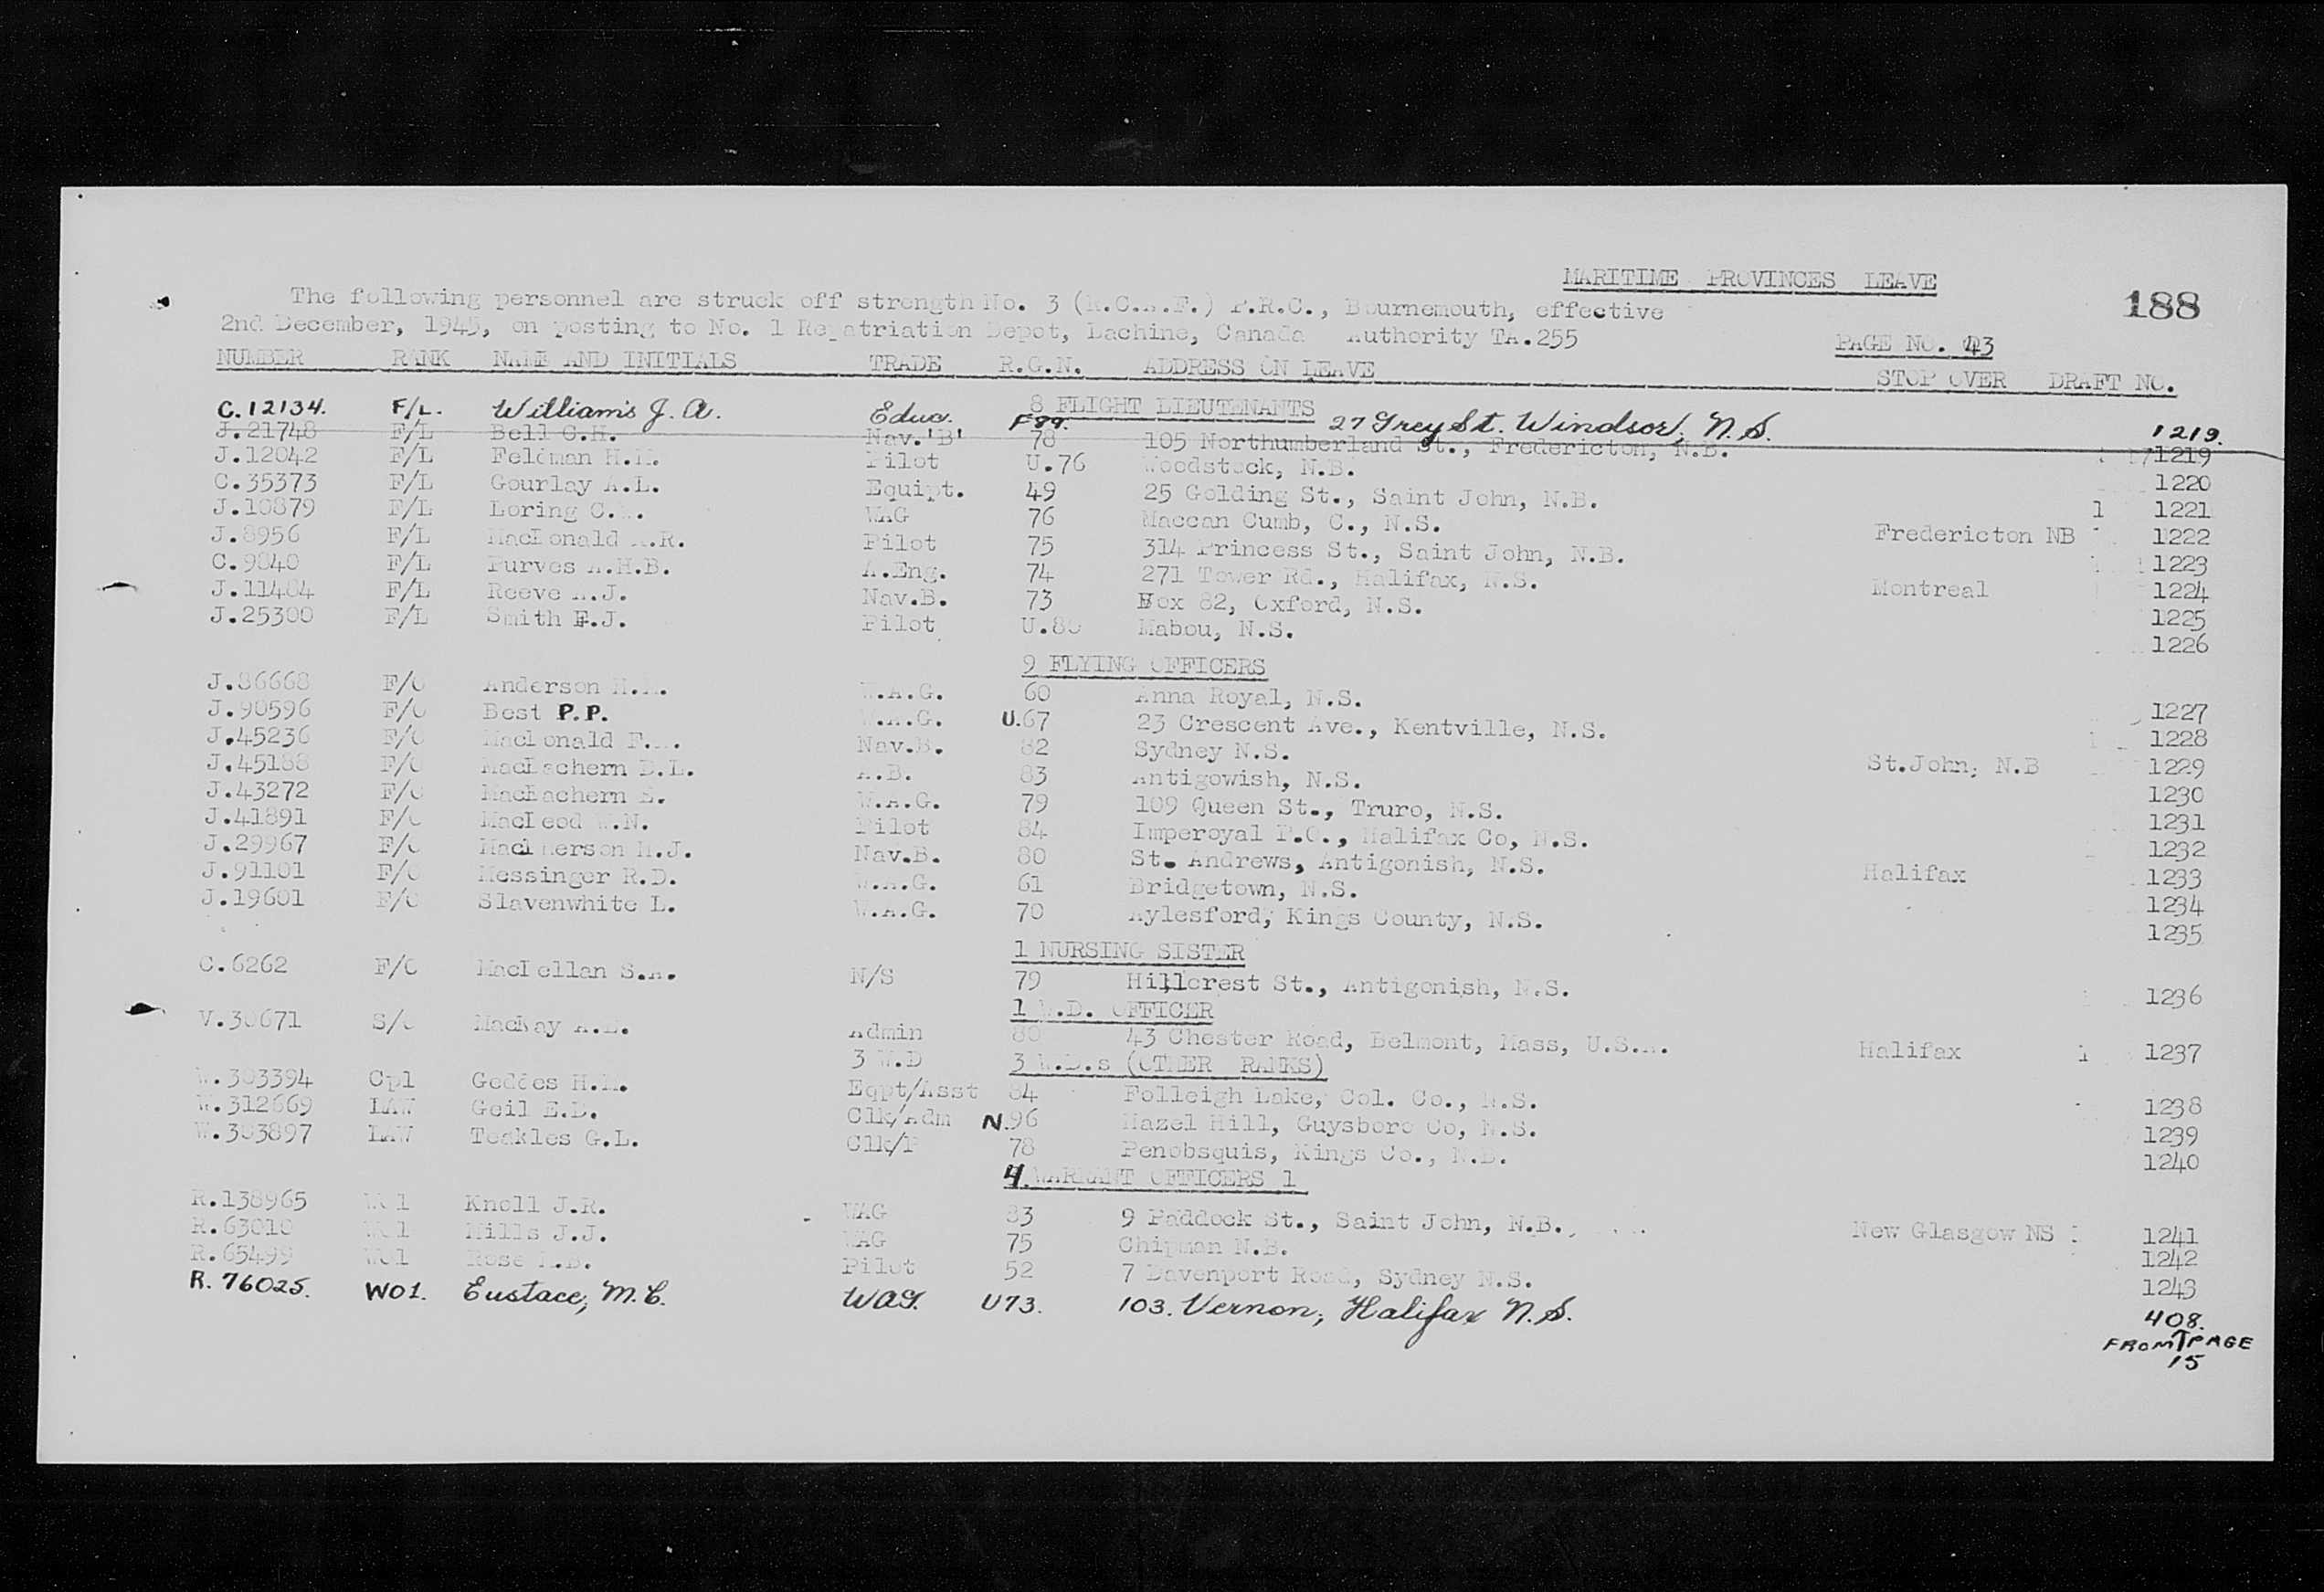 MARITIME PROVINCES LEAVE
188
The following personnel are struck off strength No. 3 (R.C.A.F.) P.R.C., Bournemouth, effective
2nd December, 1945, on posting to No. 1 Repatriation Depot, Lachine, Canada Authority TA.255
PAGE NO. 43
NUMBER RANK NAME AND INITIALS TRADE R.G.N. ADDRESS ON LEAVE STOP OVER DRAFT NO.
8 FLIGHT LIEUTENANTS
C.12134. F/L. Williams J. A. Educ. F89. 27 Grey St. Windsor, N.S. 1219.
J.21748 F/L Bell C.H. Nav.'B' 78 105 Northumberland St., Fredericton, N.B. 1219
J.12042 F/L Feldman H. Pilot U.76 Woodstock, N.B. 1220
C.35373 F/L Gourlay A.L. Equipt. 49 25 Golding St., Saint John, N.B. 1 1221
J.10879 F/L Loring C. WAG 76 Maccan Cumb, C., N.S. Fredericton NB 1222
J.8956 F/L MacDonald R. Pilot 75 314 Princess St., Saint John, N.B. 1223
C.9840 F/L Purves A.H.B. A.Eng. 74 271 Tower Rd., Halifax, N.S. Montreal 1224
J.11484 F/L Reeve A.J. Nav.B. 73 Box 82, Oxford, N.S. 1225
J.25300 F/L Smith E.J. Pilot U.80 Mabou, N.S. 1226
9 FLYING OFFICERS
J.86668 F/O Anderson H. W.A.G. 60 Anna Royal, N.S. 1227
J.90596 F/O Best P.P. W.A.G. U.67 23 Crescent Ave., Kentville, N.S. 1228
J.45236 F/O MacDonald F. Nav.B. 82 Sydney N.S. St.John, N.B 1229
J.45188 F/O MacEachern D.L. A.B. 83 Antigowish, N.S. 1230
J.43272 F/O MacEachern E. W.A.G. 79 109 Queen St., Truro, N.S. 1231
J.41891 F/O MacLeod W.N. Pilot 84 Imperoyal P.O., Halifax Co, N.S. 1232
J.29967 F/O MacPherson H.J. Nav.B. 80 St. Andrews, Antigonish, N.S. Halifax 1233
J.91101 F/O Messinger R.D. W.A.G. 61 Bridgetown, N.S. 1234
J.19601 F/O Slavenwhite L. W.A.G. 70 Aylesford, Kings County, N.S. 1235
1 NURSING SISTER
C.6262 F/O MacLellan S.A. N/S 79 Hillcrest St., Antigonish, N.S. 1236
1 W.D. OFFICER
V.30671 S/O MacKay A. Admin 80 43 Chester Road, Belmont, Mass, U.S.A. Halifax 1 1237
3 W.D 3 W.D.s (OTHER RANKS)
W.303394 Cpl Geddes H.M. Eqpt/Asst 84 Folleigh Lake, Col. Co., N.S. 1238
W.312669 LAW Geil E.D. Clk/Adm N.96 Hazel Hill, Guysboro Co, N.S. 1239
W.303897 LAW Teakles G.L. Clk/P 78 Penobsquis, Kings Co., N.B. 1240
4 WARRANT OFFICERS 1
R.138965 WO1 Knoll J.R. WAG 83 9 Paddock St., Saint John, N.B. New Glasgow NS 1241
R.63010 WO1 Mills J.J. WAG 75 Chipman N.B. 1242
R.65499 WO1 Rose Pilot 52 7 Davenport Road, Sydney N.S. 1243
R. 76025. WO1. Eustace, M.C. WAG. U73. 103. Vernon, Halifax N.S. 408.
FROM PAGE
15